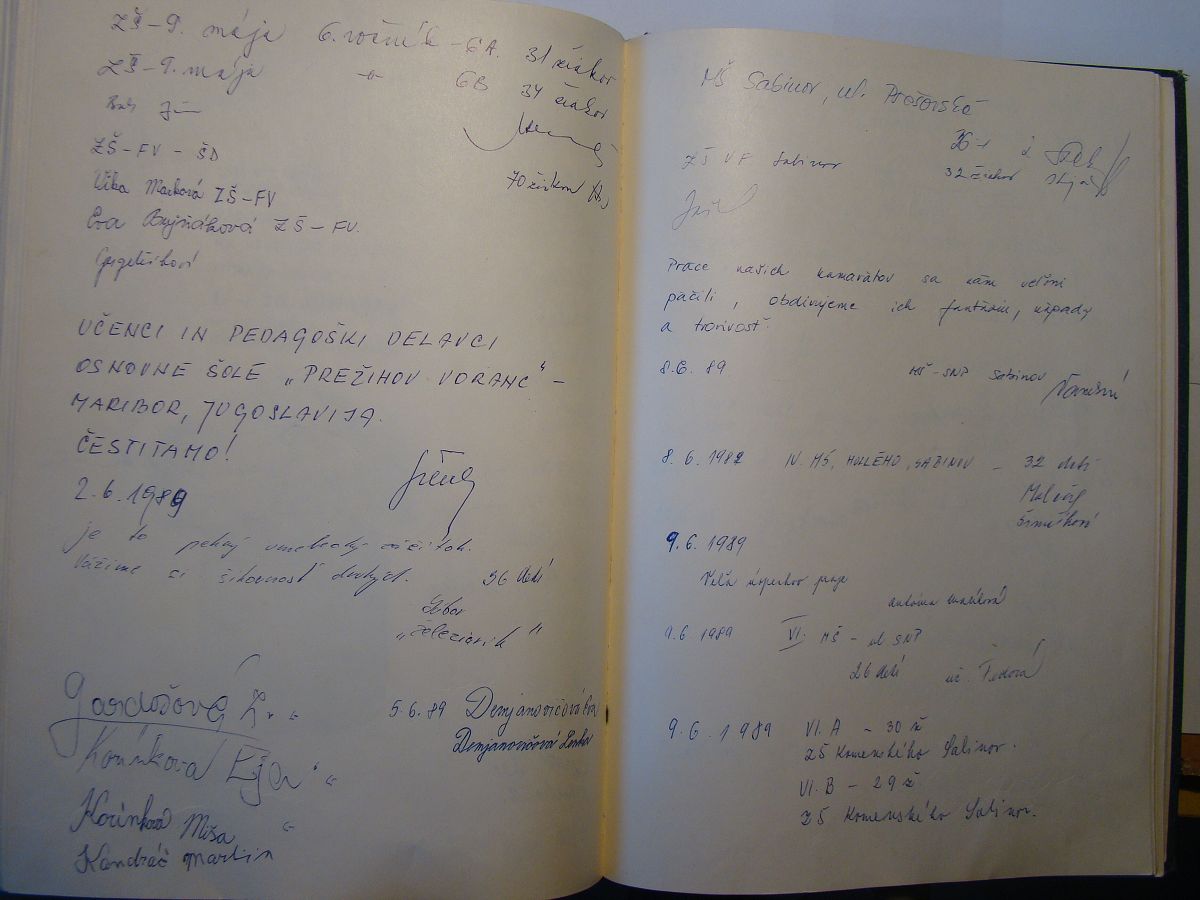 ZŠ-9. mája 6. ročník - 6A. 31 žiakov
ZŠ-9. mája -"- 6B 34 žiakov
ZŠ-FV-ŠD
70 žiakov
Marková ZŠ-FV
Eva Bujňáková ZŠ-FV.
UČENCI IN PEDAGOŠKI DELAVCI
OSNOVNE ŠOLE „PREŽIHOV VORANC“ -
MARIBOR, JUGOSLAVIJA.
ČESTITAMO!
2.6.1989
je to pekný umelecký zážitok.
Vážime si šikovnosť druhých. 36 detí
Zbor
„Železiarik“
Gardošová Ľ.
Korínková Eja
Korínková Miša
Kandráč Martin
5.6.89 Demjanovičová Eva
Demjanovičová Lenka
MŠ Sabinov, ul. Prešovská
ZŠ VF Sabinov
32 žiakov
Práce našich kamarátov sa nám veľmi
páčili, obdivujeme ich fantáziu, nápady
a tvorivosť.
8.6.89 MŠ-SNP Sabinov
8.6.1989 IV. MŠ, HOLLÉHO, SABINOV - 32 detí
Šimečková
9.6.1989
Veľa úspechov praje
9.6.1989 VI. MŠ - ul SNP
26 detí uč. Fedorá
9.6.1989 VI.A - 30 ž
ZŠ Komenského Sabinov.
VI.B - 29 ž
ZŠ Komenského Sabinov.